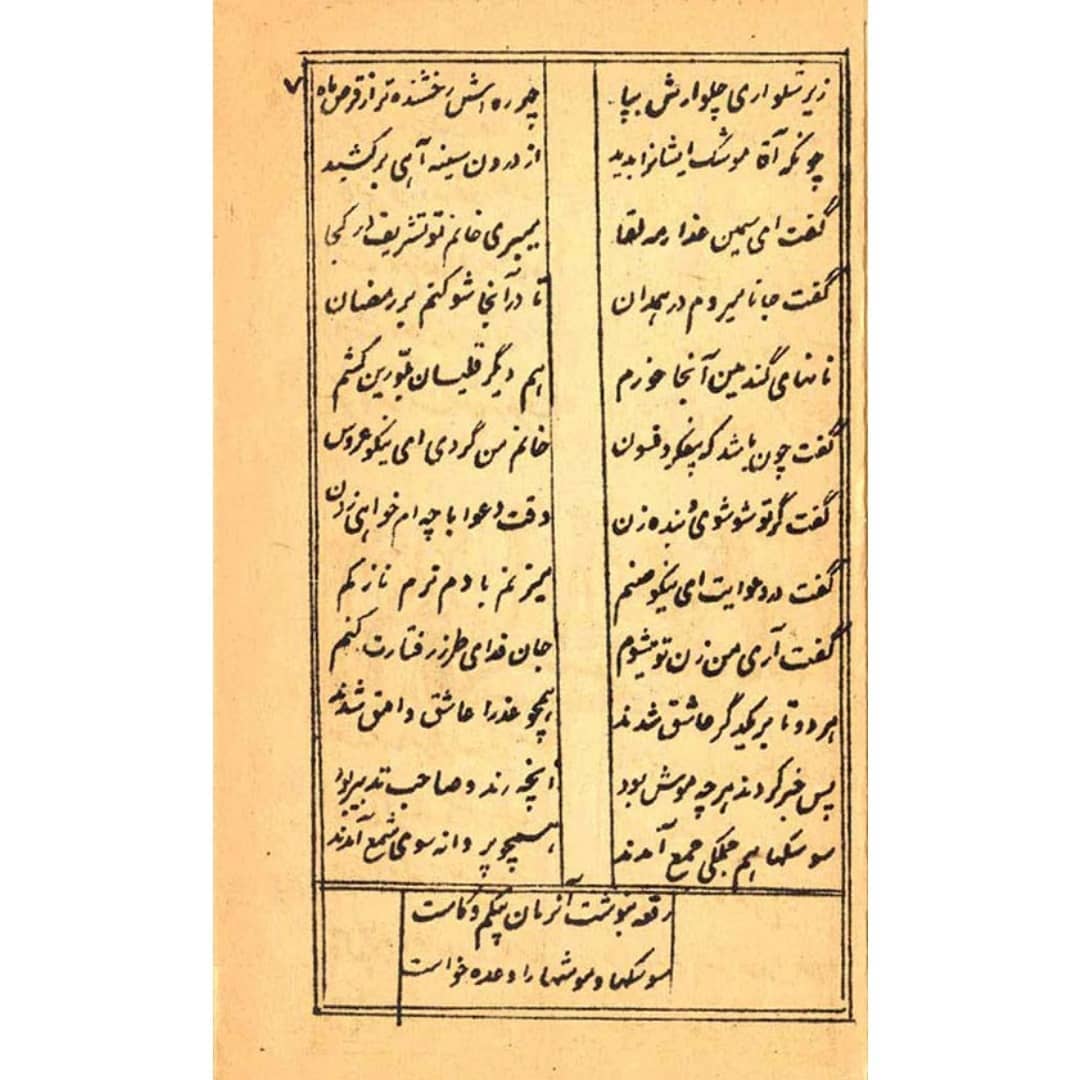 ۷
زیر شلواری چلوارش بپا چهره اش رخشنده تر از قرص ماه
چونکه آقا موشک ایشانرا بدید از درون سینه آهی برکشید
گفت ای سیمین عذار مه لقا میبری خانم تو تشریف از کجا
گفت جانا میروم در همدان تا در آنجا شو کنم بر رمضان
نانهای گندمین آنجا خورم هم دیگر قلیان بلورین کشم
گفت چون باشد که بیفکر و فسون خانم من گردی ای نیکو عروس
گفت گر تو شو شوی و بنده زن وقت دعوا با چه ام خواهی زدن
گفت در دعوایت ای نیکو صنم میزنم با دم نرم نازکم
گفت آری من زن تو میشوم جان فدای طرز رفتارت کنم
هر دو تا بر یکدیگر عاشق شدند همچو عذرا عاشق وامق شدند
پس خبر کردند هر چه موش بود آنچه رند و صاحب تدبیر بود
سوسکها هم جملگی جمع آمدند همچو پروانه سوی شمع آمدند
رقعه بنوشت آنزمان بیکم و کاست
سوسکها و موشها را وعده خواست